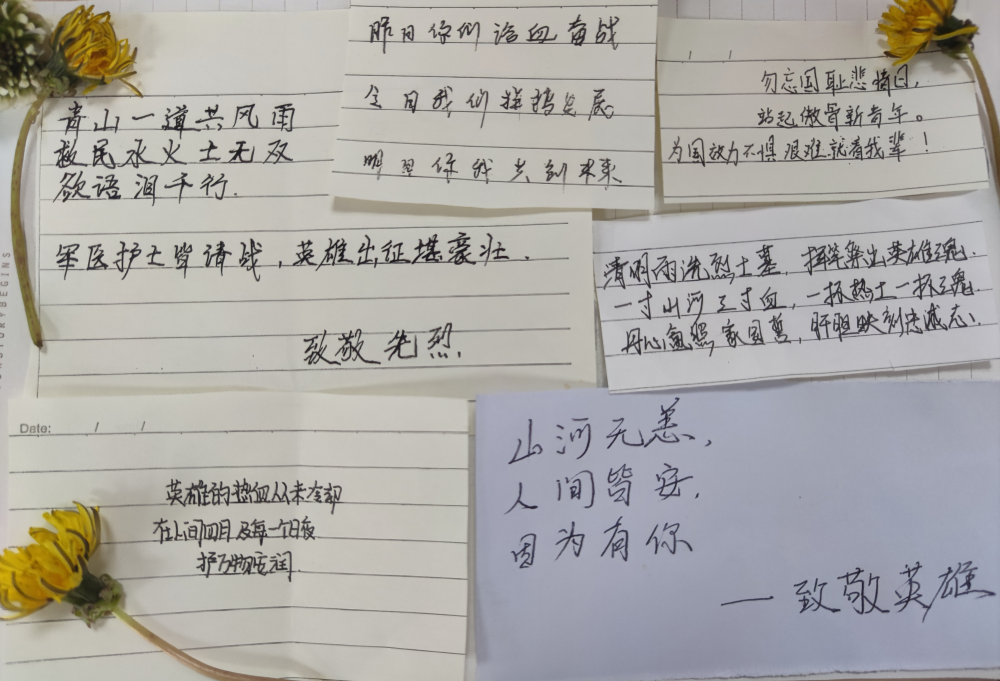 青山一道共风雨
救民水火士无双
欲语泪千行.
军医护士皆请战,英雄出征堪豪壮.
致敬先烈.
昨日你们浴血奋战
今日我们拼搏发展
明日你我共创未来
/ /
勿忘国耻悲情日,
站起傲骨新青年。
为国效力不惧艰难就看我辈!
清明雨洗烈士墓,挥笔染出英雄魂.
一寸山河一寸血,一抔热土一抔魂.
丹心氤照家国誓,肝胆映刻忠诚志.
Date: / /
英雄的热血从未冷却
在人间四月及每一个日夜
护万物安润.
山河无恙,
人间皆安,
因为有你
一致敬英雄